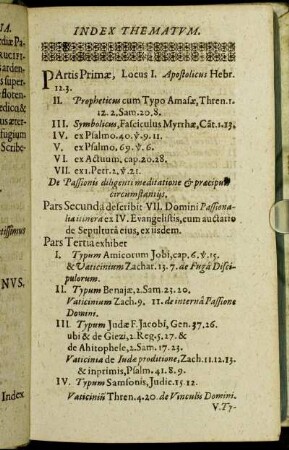 INDEX THEMATVM.
PArtis Primæ, Locus I. Apostolicus Hebr.
12.3.
II. Propheticus cum Typo Amasæ, Thren.1.
12. 2. Sam.20.8.
III. Symbolicus, Fasciculus Myrrhæ, Cãt.1.13.
IV. ex Psalmo.40.℣.9.11.
V. ex Psalmo.69.℣.6.
VI. ex Actuum, cap.20.28.
VII. ex 1.Petr.2.℣.21.
De Passionis diligenti meditatione & præcipuis
circumstantijs.
Pars Secunda describit VII. Domini Passiona-
lia itinera ex IV. Evangelistis, cum auctatio
de Sepultura ejus, ex iisdem.
Pars Tertia exhibet
I. Typum Amicorum Jobi, cap.6.℣.15.
& Vaticinium Zachar.13.7. de Fugâ Disci-
pulorum.
II. Typum Benajæ, 2.Sam.23.20.
Vaticinium Zach.9. 11. de internâ Passione
Domini.
III. Typum Judæ F. Jacobi, Gen.37.26.
ubi & de Giezi, 2.Reg.5,27. &
de Ahitophele, 2.Sam.17.23.
Vaticinia de Iudæ proditione, Zach.11.12.13.
& inprimis, Psalm.41.8.9.
IV. Typum Samsonis, Judic.15.12.
Vaticiniũ Thren.4.20. de Vinculis Domini.
V.Ty-
IA.
diæ Pa-
RUCIFI-
arden-
super-
floten-
edica &
m æter-
efugium
Scribe-
etissimus
NVS,
Index